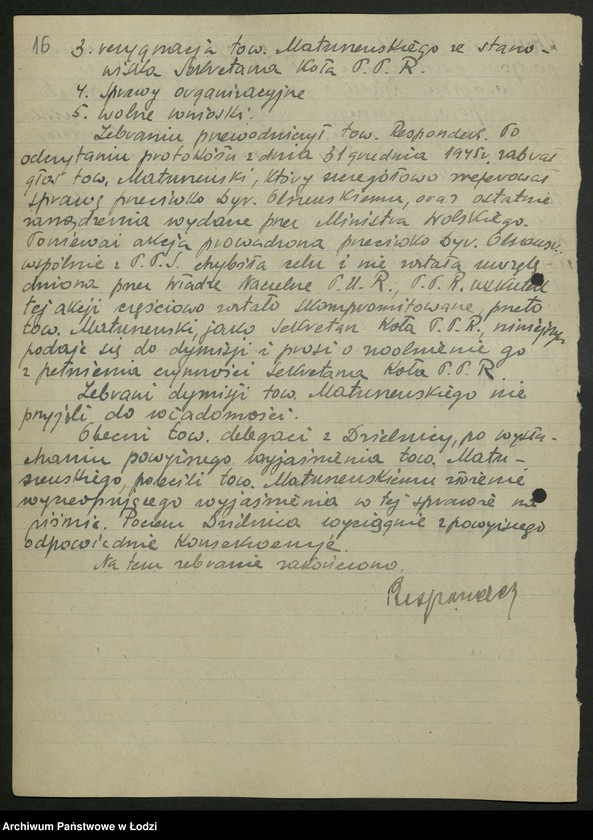 16
3. rezygnacja tow. Matuszewskiego ze stano-
wiska Sekretarza Koła P.P.R.
4. Sprawy organizacyjne
5. wolne wnioski.
Zebraniu przewodniczył tow. Respondek. Po
odczytaniu protokółu z dnia 31 grudnia 1945r. zabrał
głos tow. Matuszewski, który szczegółowo zreferował
sprawę przeciwko Dyr. Olszewskiemu, oraz ostatnie
zarządzenia wydane przez Ministra Wolskiego.
Ponieważ akcja prowadzona przeciwko Dyr.
wspólnie z P.P.S. chybiła celu i nie została uwzglę-
dniona przez Władze Naczelne P.U.R., P.P.R. wskutek
tej akcji częściowo zostało skompromitowane, przeto
tow. Matuszewski, jako Sekretarz Koła P.P.R., niniejszym
podaje się do dymisji i prosi o zwolnienie go
z pełnienia czynności Sekretarza Koła P.P.R.
Zebrani dymisji tow. Matuszewskiego nie
przyjęli do wiadomości.
Obecni tow. delegaci z Dzielnicy, po wysłu-
chaniu powyższego wyjaśnienia tow. Matu-
szewskiego, polecili tow. Matuszewskiemu złożenie
wyczerpującego wyjaśnienia w tej sprawie na
piśmie. Poczem Dzielnica wyciągnie z powyższego
odpowiednie konsekwencje.
Na tem zebranie zakończono.
Respondek
Archiwum Państwowe w Łodzi